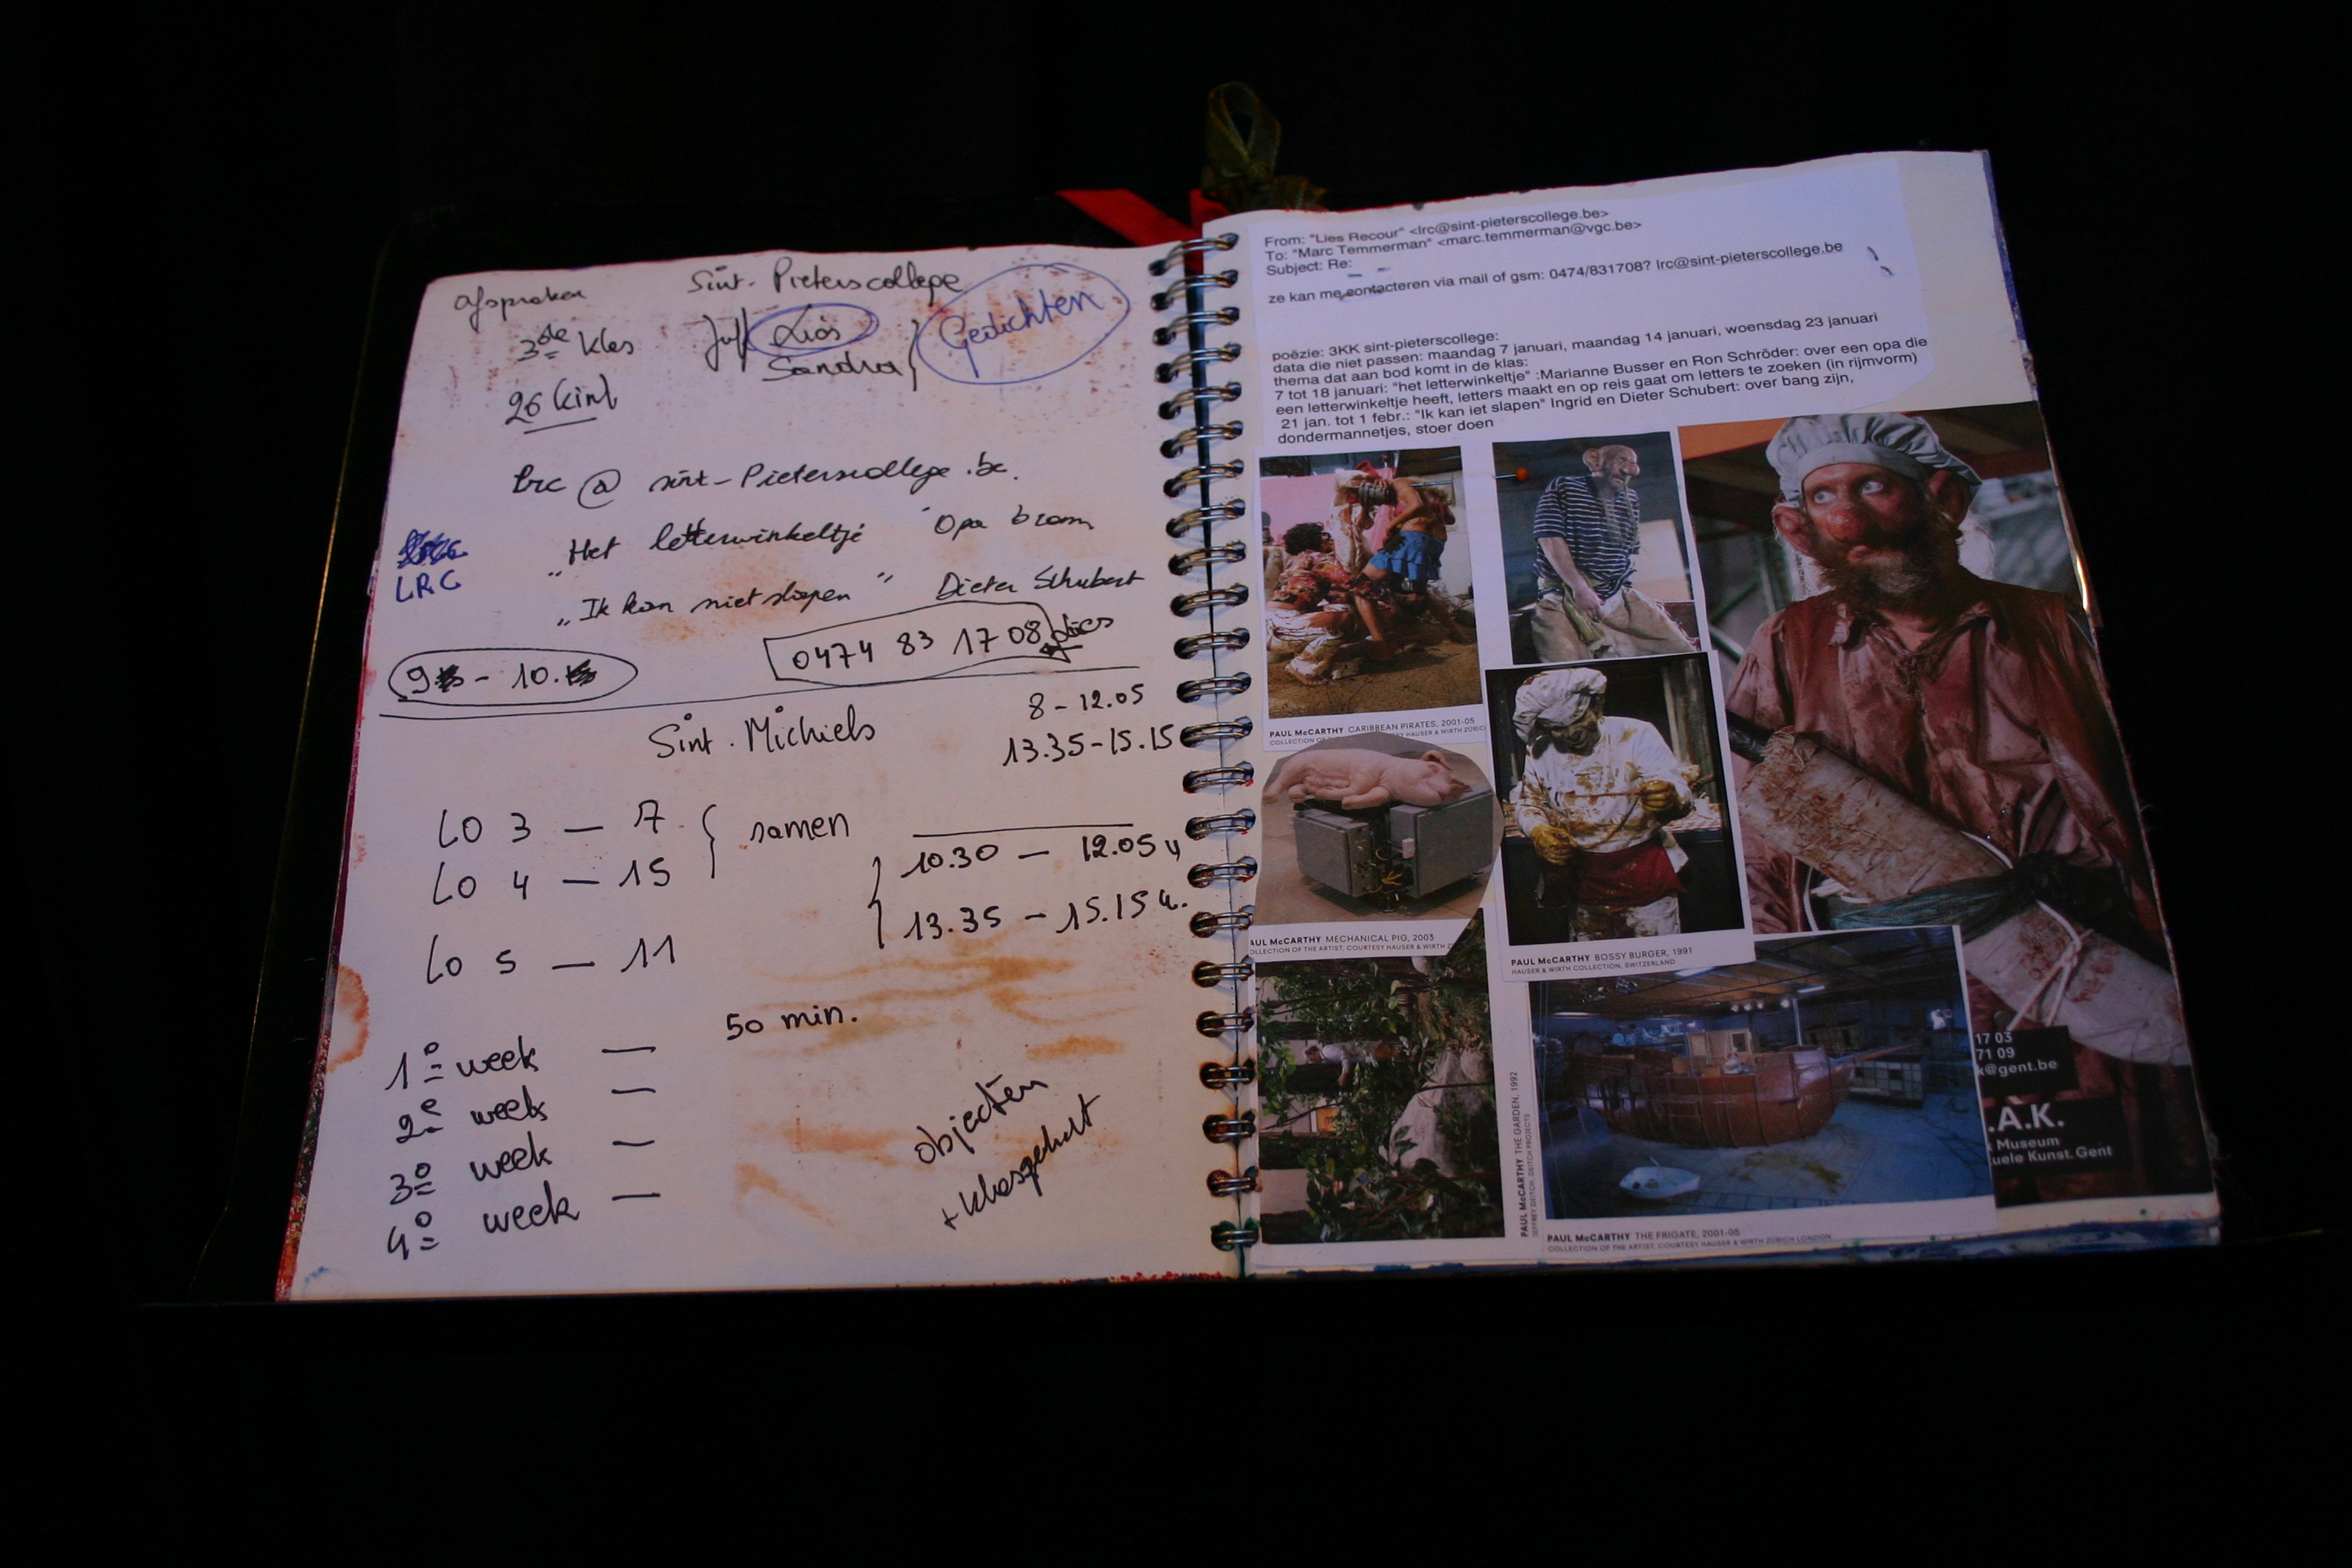 afspraken
Sint-Pieterscollege
3de klas
Juf Lies
Sandra
Gedichten
26 kind
lrc @ sint-Pieterscollege.be.
LRC
"Het letterwinkeltje Opa bram
"Ik kan niet slapen" Dieter Schubert
0474 83 17 08 Lies
9 - 10.
Sint. Michiels
8 - 12.05
13.35 - 15.15
LO 3 — 7
LO 4 — 15
samen
10.30 — 12.05 u
13.35 - 15.15 u.
LO 5 — 11
50 min.
1e week —
2e week —
3e week —
4e week —
objecten
+ klasgehelt
From: "Lies Recour" <lrc@sint-pieterscollege.be>
To: "Marc Temmerman" <marc.temmerman@vgc.be>
Subject: Re:
ze kan me contacteren via mail of gsm: 0474/831708? lrc@sint-pieterscollege.be
poëzie: 3KK sint-pieterscollege:
data die niet passen: maandag 7 januari, maandag 14 januari, woensdag 23 januari
thema dat aan bod komt in de klas:
7 tot 18 januari: "het letterwinkeltje" :Marianne Busser en Ron Schröder: over een opa die
een letterwinkeltje heeft, letters maakt en op reis gaat om letters te zoeken (in rijmvorm)
21 jan. tot 1 febr.: "Ik kan iet slapen" Ingrid en Dieter Schubert: over bang zijn,
dondermannetjes, stoer doen
PAUL McCARTHY CARIBBEAN PIRATES, 2001-05
COLLECTION OF HAUSER & WIRTH ZÜRICH
AUL McCARTHY MECHANICAL PIG, 2003
OLLECTION OF THE ARTIST, COURTESY HAUSER & WIRTH Z
PAUL McCARTHY BOSSY BURGER, 1991
HAUSER & WIRTH COLLECTION, SWITZERLAND
PAUL McCARTHY THE GARDEN, 1992
JEFFREY DEITCH, DEITCH PROJECTS
PAUL McCARTHY THE FRIGATE, 2001-05
COLLECTION OF THE ARTIST, COURTESY HAUSER & WIRTH ZÜRICH LONDON
17 03
71 09
k@gent.be
.A.K.
k Museum
uele Kunst. Gent